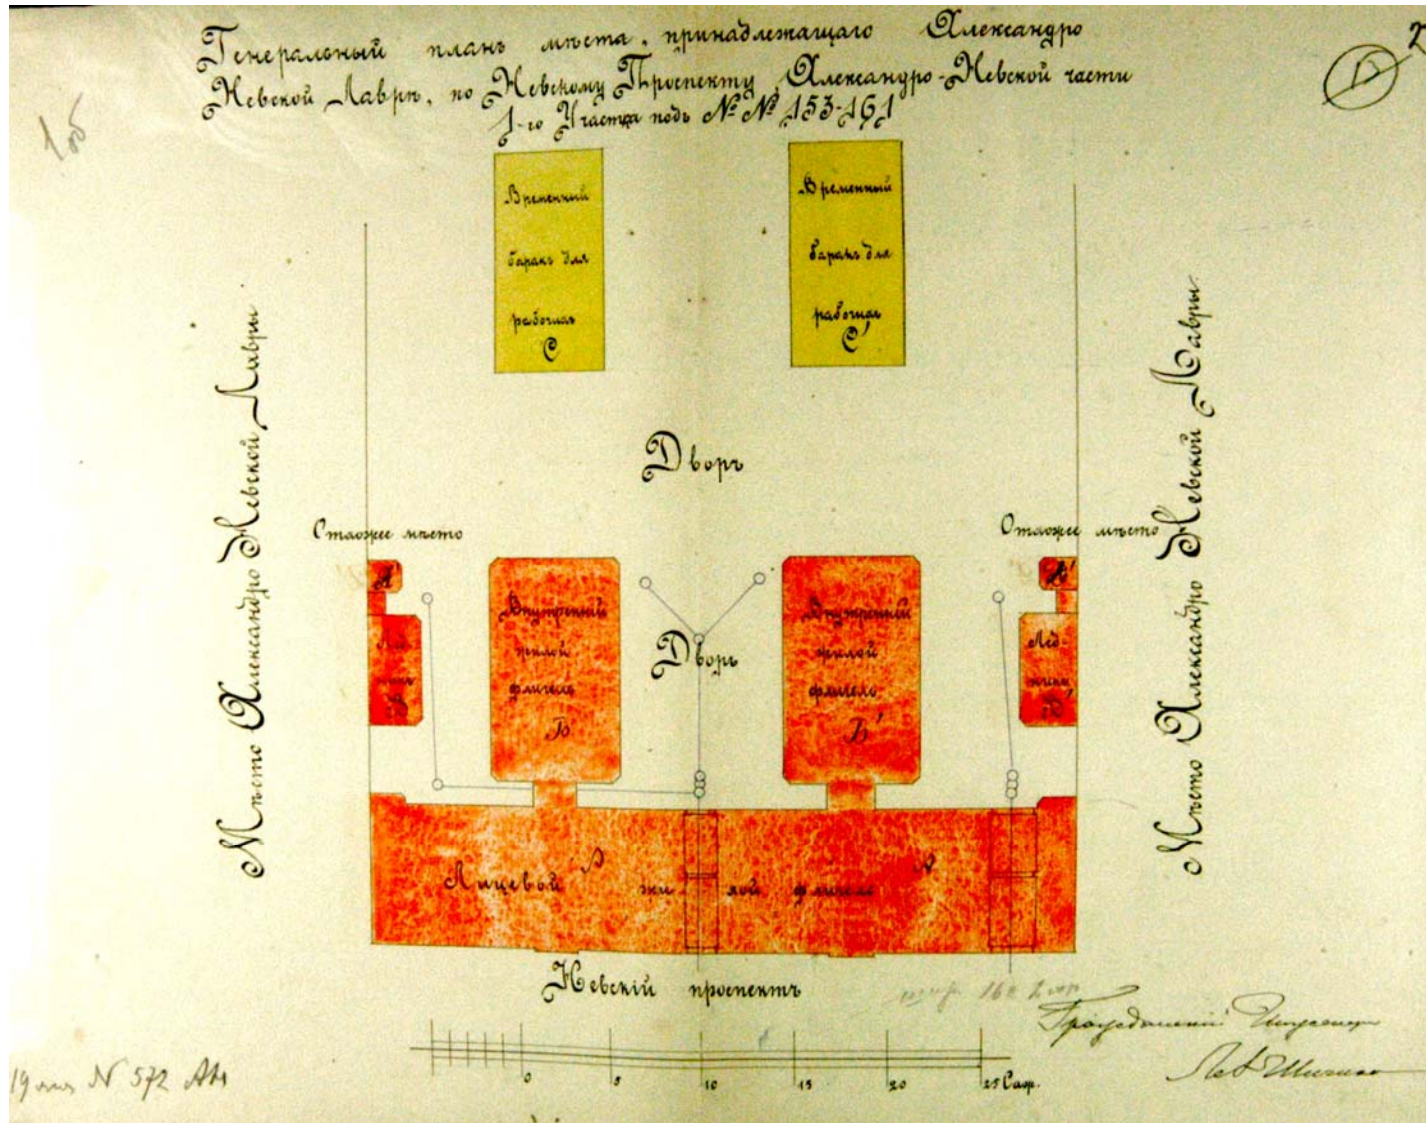 Генеральный планъ мѣста, принадлежащаго Александро
Невской Лаврѣ, по Невскому Проспекту, Александро-Невской части
1-го Участка подъ №№ 153-161
2
Временный
баракъ для
рабочихъ
С
Временный
баракъ для
рабочихъ
С'
Мѣсто Александро Невской Лавры
Дворъ
Мѣсто Александро Невской Лавры
Отхожее мѣсто
Отхожее мѣсто
Внутренній
жилой
флигель
Б
Дворъ
Внутренній
жилой
флигель
Б'
Лед-
никъ
В
Лед-
никъ
В'
Лицевой жилой флигель А
Невскій проспектъ
Гражданскій Инженеръ
0 5 10 15 20 25 Саж.
№ 572